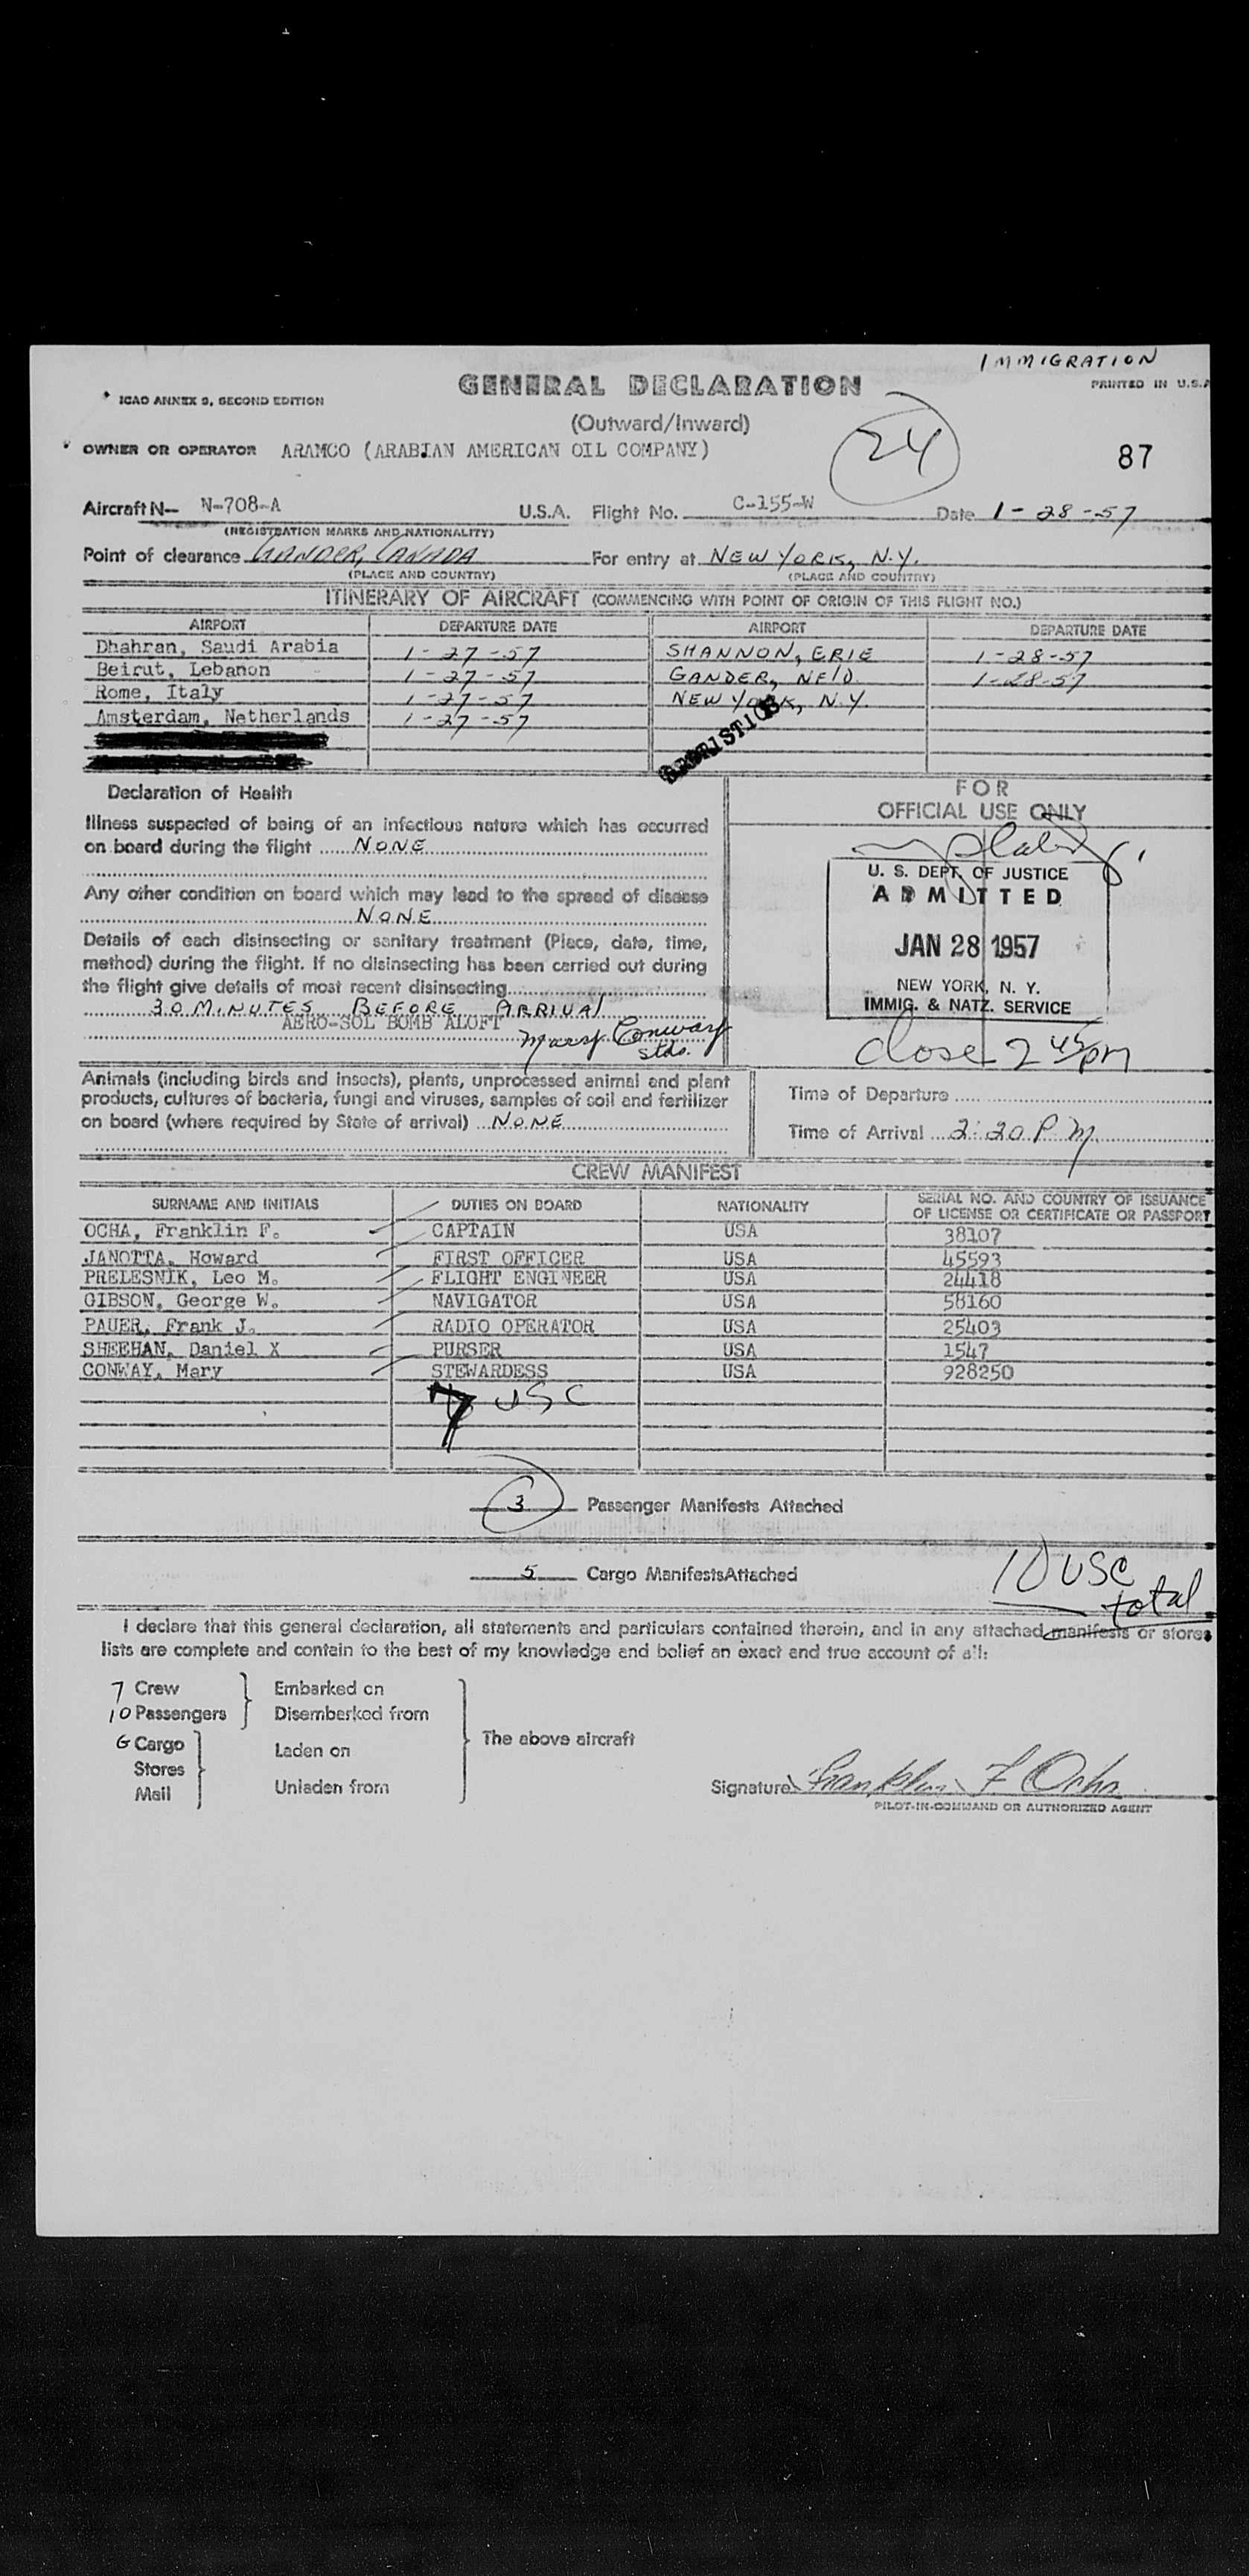 IMMIGRATION
GENERAL DECLARATION
PRINTED IN U.S.A
ICAO ANNEX 9, SECOND EDITION
(Outward/Inward)
24
OWNER OR OPERATOR ARAMCO (ARABIAN AMERICAN OIL COMPANY)
87
Aircraft N-- N-708-A U.S.A. Flight No. C-155-W Date 1-28-57
(REGISTRATION MARKS AND NATIONALITY)
Point of clearance GANDER, CANADA For entry at NEW YORK, N.Y.
(PLACE AND COUNTRY) (PLACE AND COUNTRY)
ITINERARY OF AIRCRAFT (COMMENCING WITH POINT OF ORIGIN OF THIS FLIGHT NO.)
AIRPORT DEPARTURE DATE AIRPORT DEPARTURE DATE
Dhahran, Saudi Arabia 1-27-57 SHANNON, ERIE 1-28-57
Beirut, Lebanon 1-27-57 GANDER, NFLD. 1-28-57
Rome, Italy 1-27-57 NEW YORK, N.Y.
Amsterdam, Netherlands 1-27-57
Declaration of Health
FOR
OFFICIAL USE ONLY
Illness suspected of being of an infectious nature which has occurred
on board during the flight NONE
Any other condition on board which may lead to the spread of disease
NONE
Details of each disinsecting or sanitary treatment (Place, date, time,
method) during the flight. If no disinsecting has been carried out during
the flight give details of most recent disinsecting
30 MINUTES BEFORE ARRIVAL
AERO-SOL BOMB ALOFT
Mary Conway
stds.
U. S. DEPT. OF JUSTICE
ADMITTED
JAN 28 1957
NEW YORK, N. Y.
IMMIG. & NATZ. SERVICE
close 2 45 pm
Animals (including birds and insects), plants, unprocessed animal and plant
products, cultures of bacteria, fungi and viruses, samples of soil and fertilizer
on board (where required by State of arrival) NONE
Time of Departure
Time of Arrival 2:20 P M
CREW MANIFEST
SURNAME AND INITIALS DUTIES ON BOARD NATIONALITY SERIAL NO. AND COUNTRY OF ISSUANCE
OF LICENSE OR CERTIFICATE OR PASSPORT
OCHA, Franklin F. CAPTAIN USA 38107
JANOTTA, Howard FIRST OFFICER USA 45593
PRELESNIK, Leo M. FLIGHT ENGINEER USA 24418
GIBSON, George W. NAVIGATOR USA 58160
PAUER, Frank J. RADIO OPERATOR USA 25403
SHEEHAN, Daniel X PURSER USA 1547
CONWAY, Mary STEWARDESS USA 928250
7 USC
3 Passenger Manifests Attached
5 Cargo Manifests Attached
10 USC
total
I declare that this general declaration, all statements and particulars contained therein, and in any attached manifests or stores
lists are complete and contain to the best of my knowledge and belief an exact and true account of all:
7 Crew Embarked on
10 Passengers Disembarked from
6 Cargo Laden on
Stores
Mail Unladen from
The above aircraft
Signature Franklin F Ocha
PILOT-IN-COMMAND OR AUTHORIZED AGENT